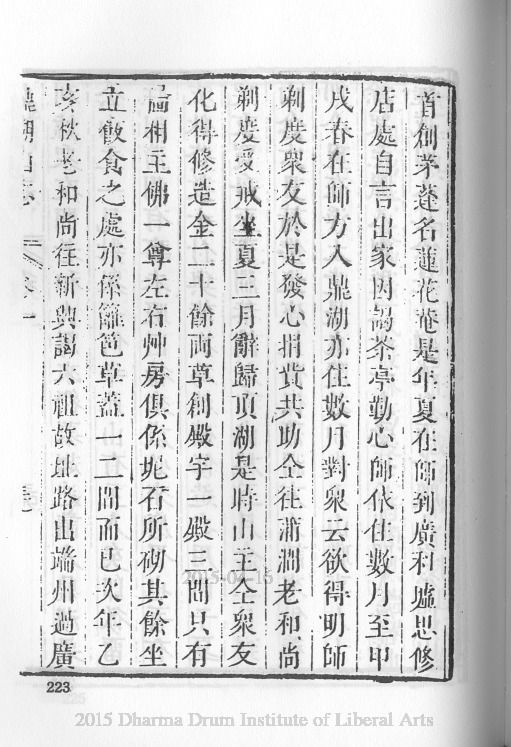 首創茅蓬名蓮花菴是年夏在師到廣利墟思修
店處自言出家因謁茶亭勤心師依住數月至甲
戌春在師方入鼎湖亦住數月對衆云欲得明師
剃度衆友於是發心捐貲共助仝往蒲澗老和尚
剃度受戒坐夏三月辭歸頂湖是時山主仝衆友
化得修造金二十餘兩草創殿宇一殿三間只有
相主佛一尊左右艸房俱係坭石所砌其餘坐
立飯食之處亦係籬笆草蓋一二間而已次年乙
亥秋老和尚往新興謁六祖故址路出端州過廣
鼎湖山志 卷一
223
2015-04-15
2015 Dharma Drum Institute of Liberal Arts